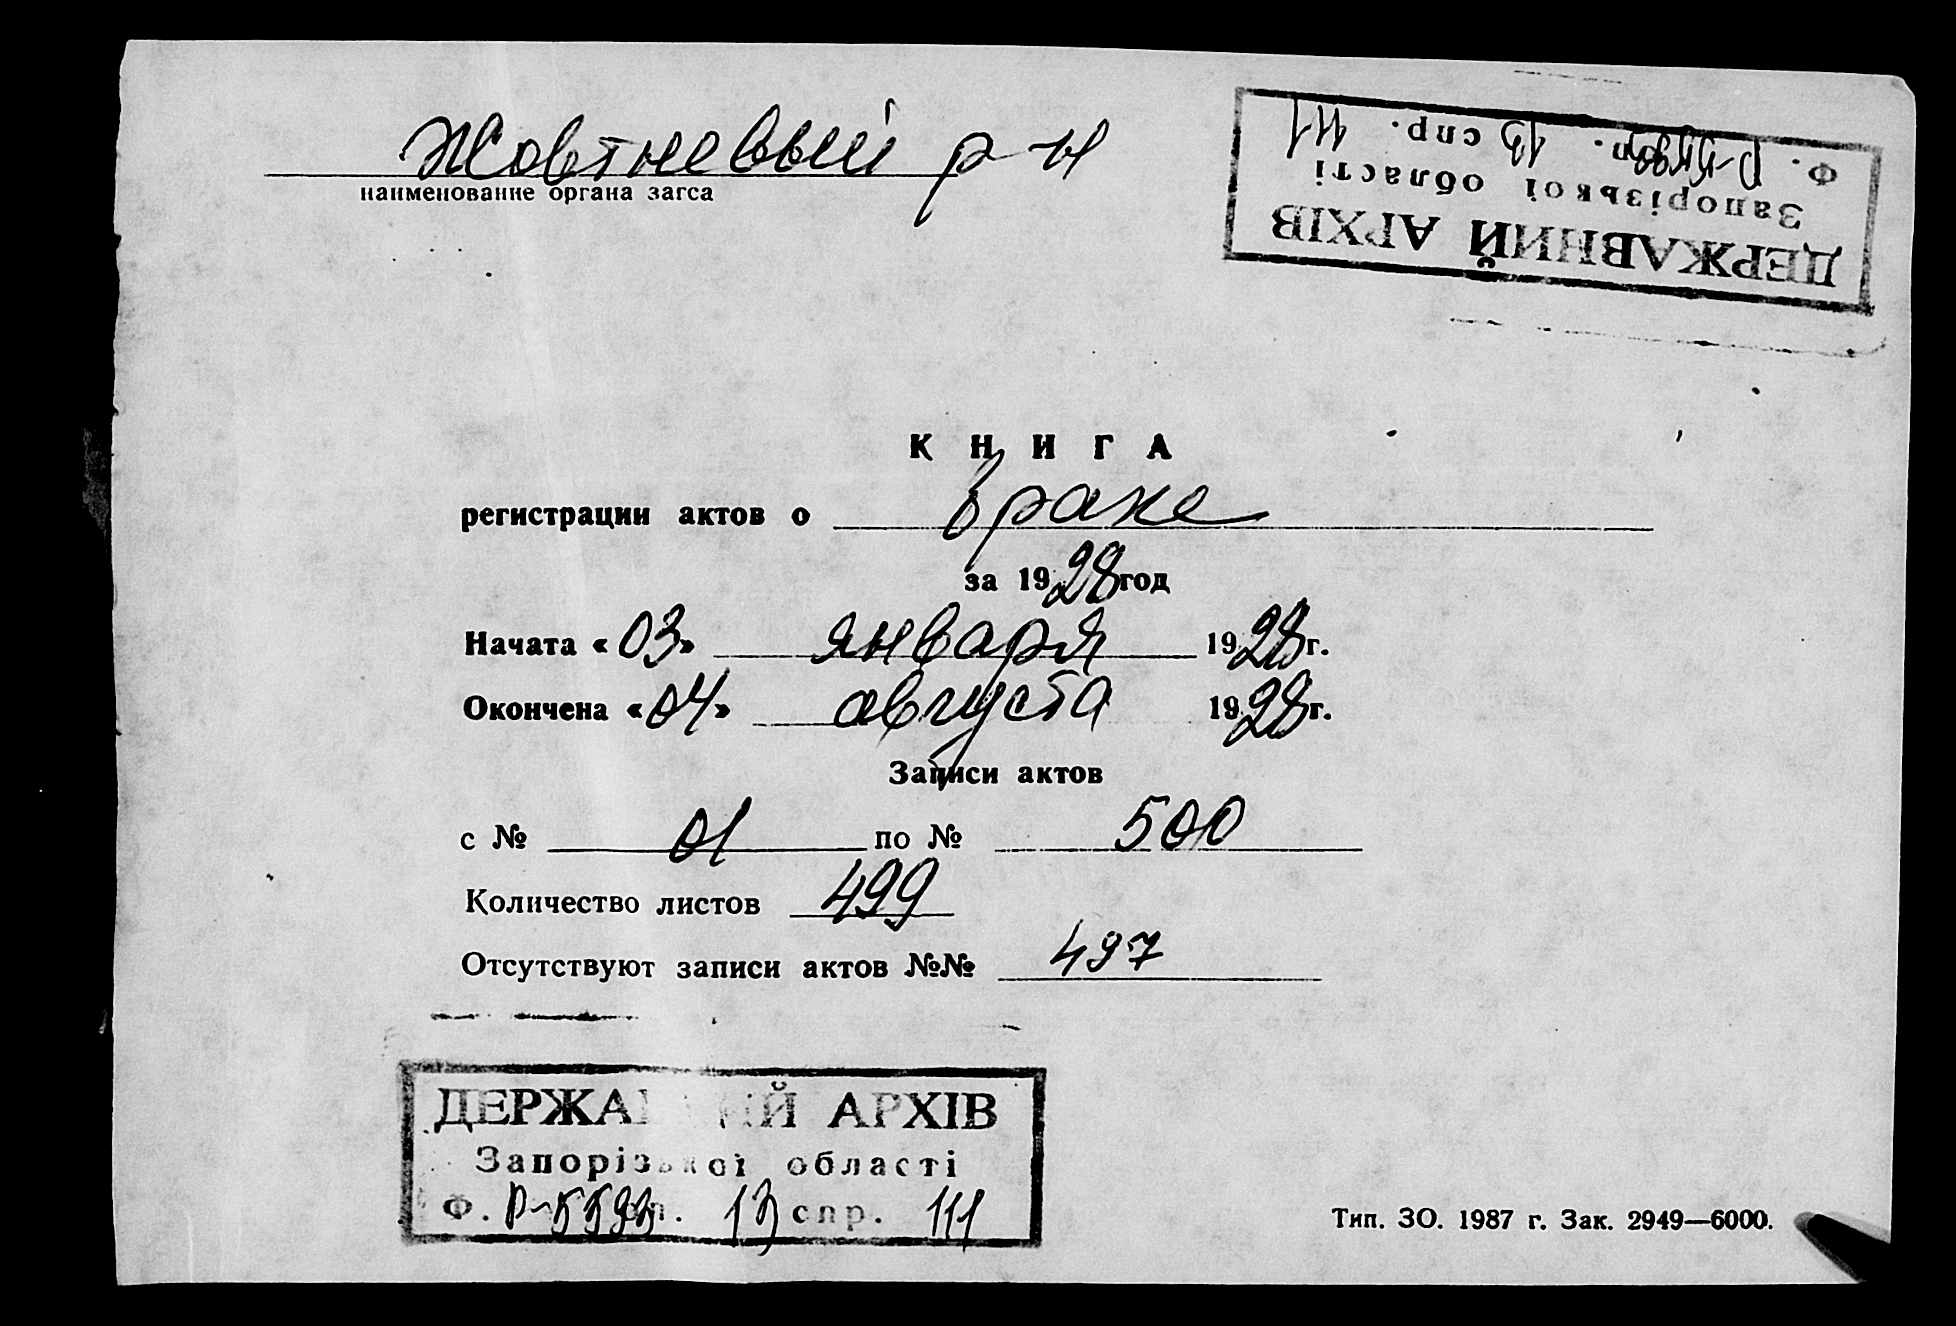 Жовтневый р-н
наименование органа загса
ДЕРЖАВНИЙ АРХІВ
Запорізької області
Ф. Р-5593 оп. 13 спр. 111
КНИГА
регистрации актов о браке
за 1928 год
Начата «03» января 1928 г.
Окончена «04» августа 1928 г.
Записи актов
с № 01 по № 500
Количество листов 499
Отсутствуют записи актов №№ 497
ДЕРЖАВНИЙ АРХІВ
Запорізької області
Ф. Р-5593 оп. 13 спр. 111
Тип. ЗО. 1987 г. Зак. 2949—6000.